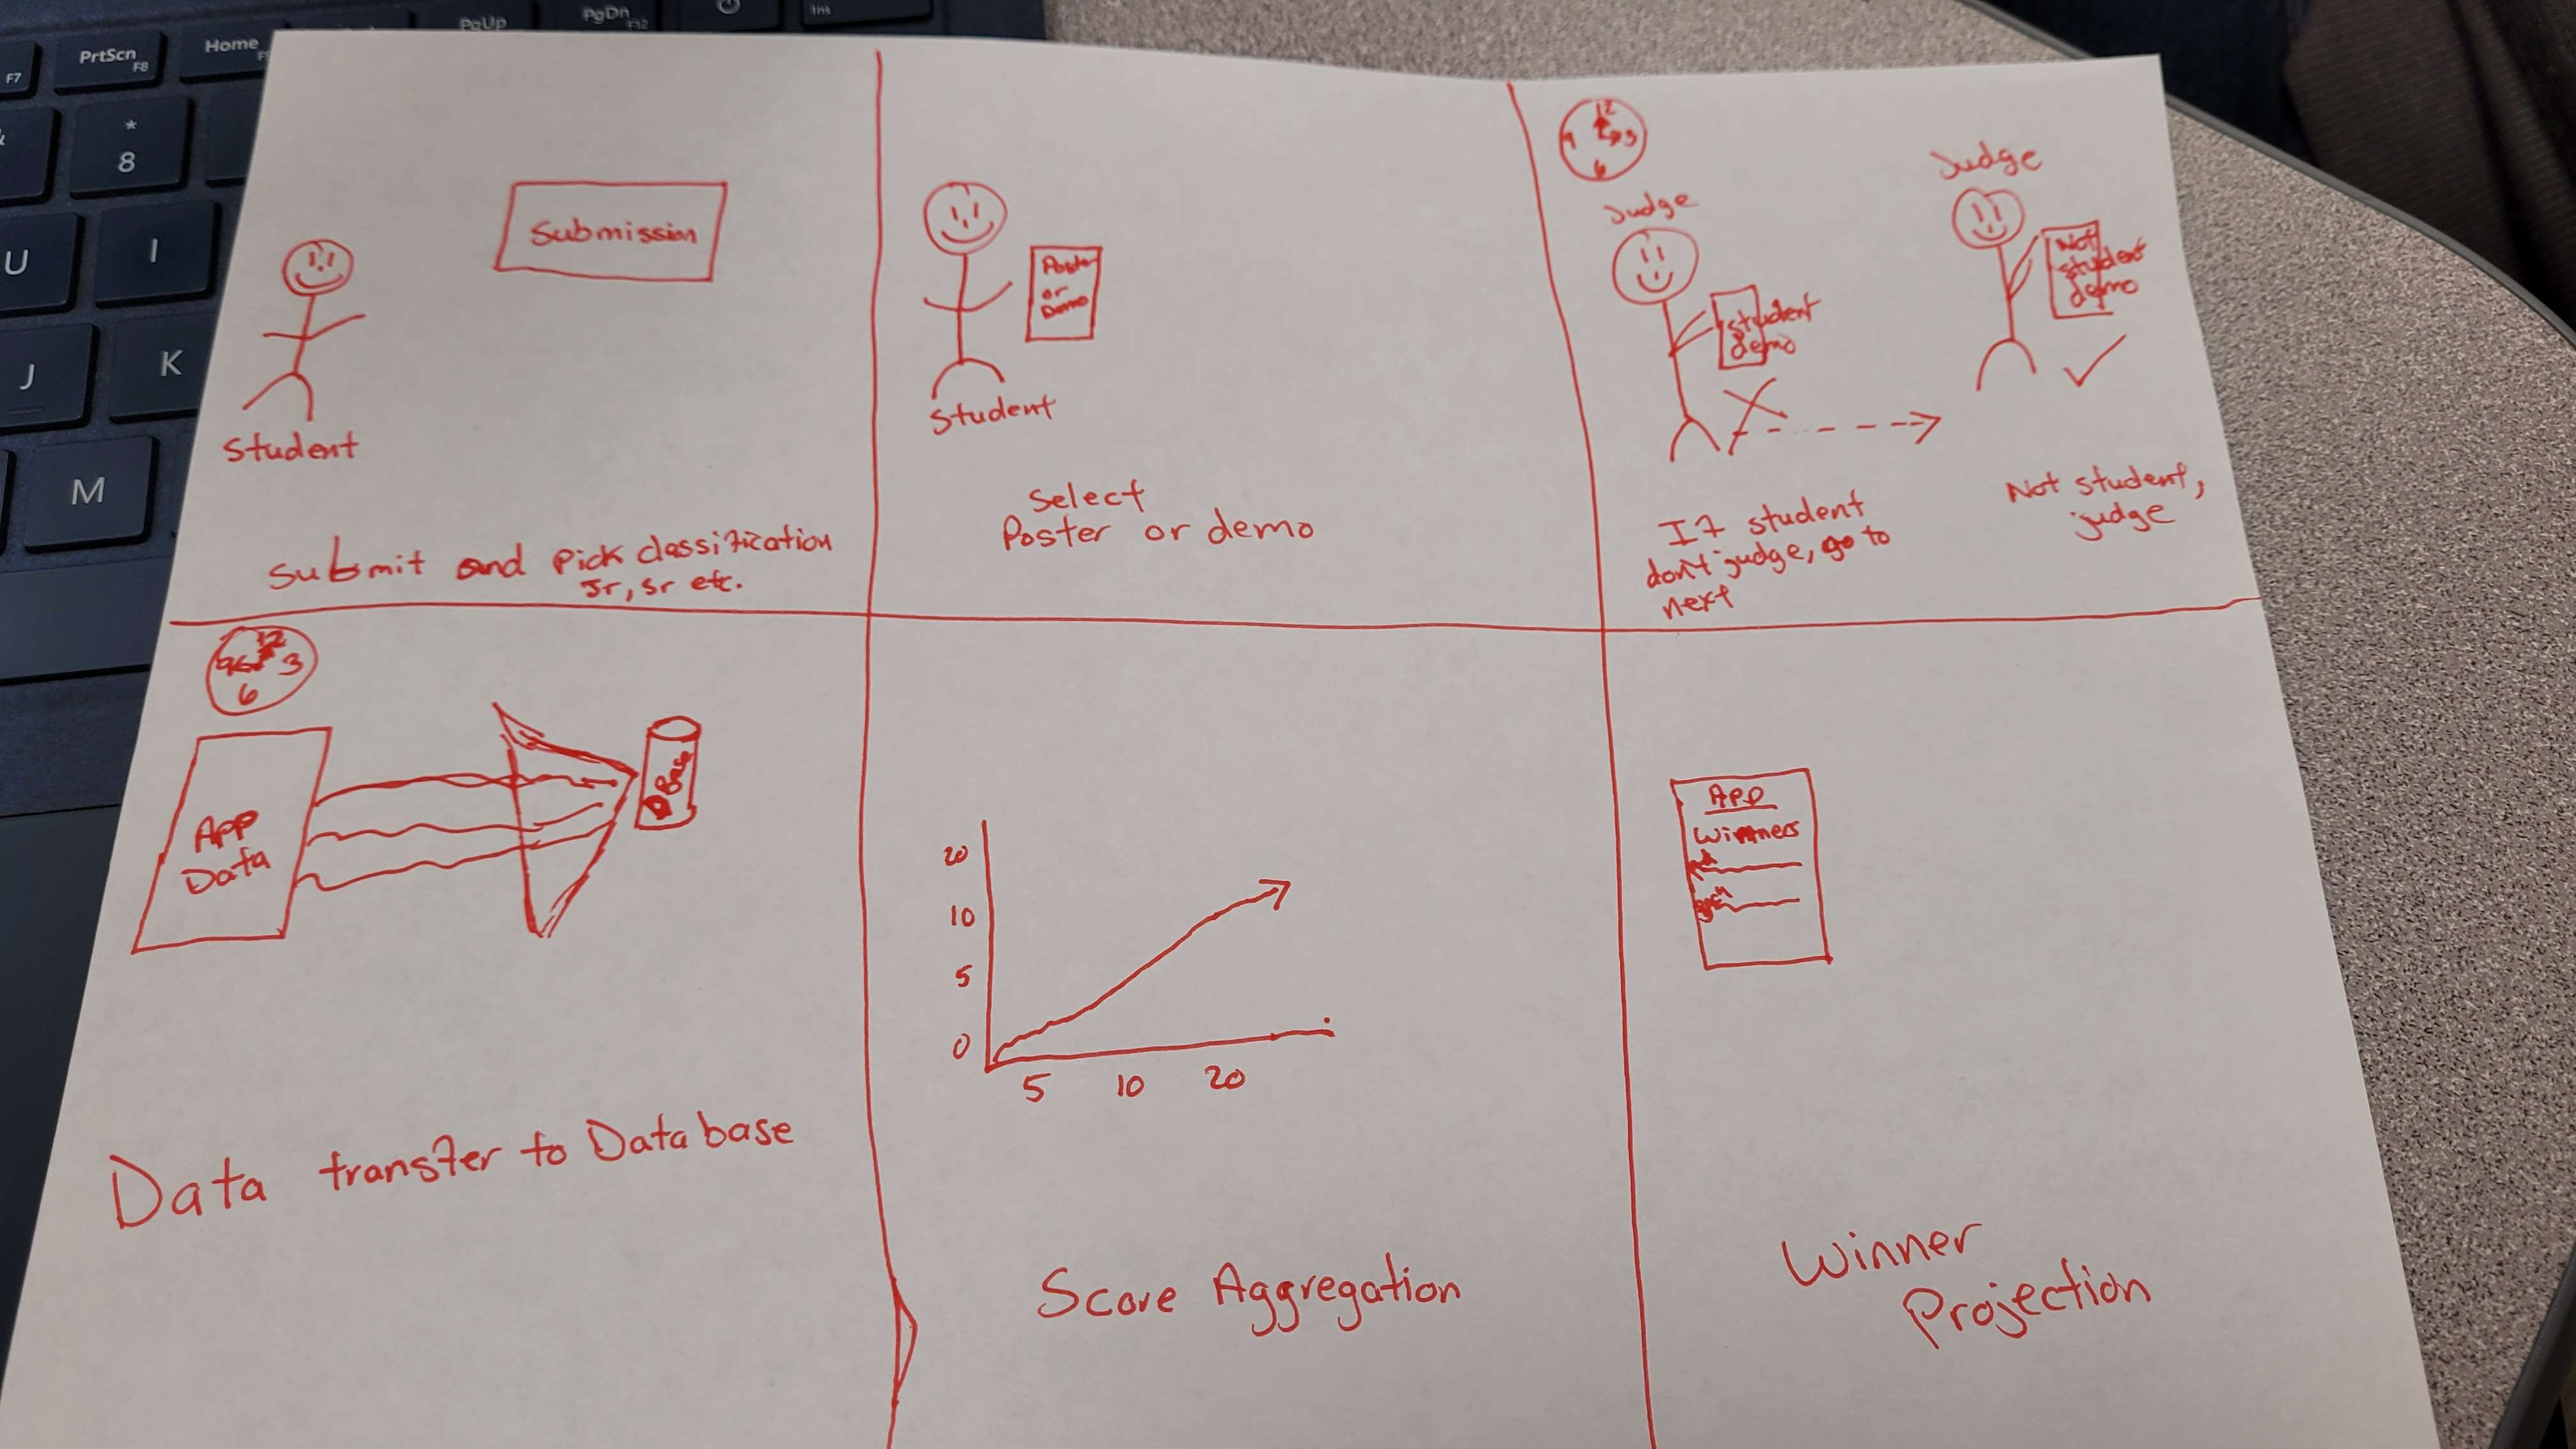 PrtScn
F8
Home
PgUp
PgDn
F12
Ins
F7
*
8
U
I
J
K
M
Submission
Student
Submit and pick classification
Jr, Sr etc.
Poster
or
Demo
Student
Select
Poster or demo
12
9
3
6
Judge
student
demo
If student
don't judge, go to
next
Judge
Not
student
demo
Not student,
judge
12
9
3
6
App
Data
DBase
Data transfer to Database
20
10
5
0
5 10 20
Score Aggregation
App
Winners
Winner
Projection